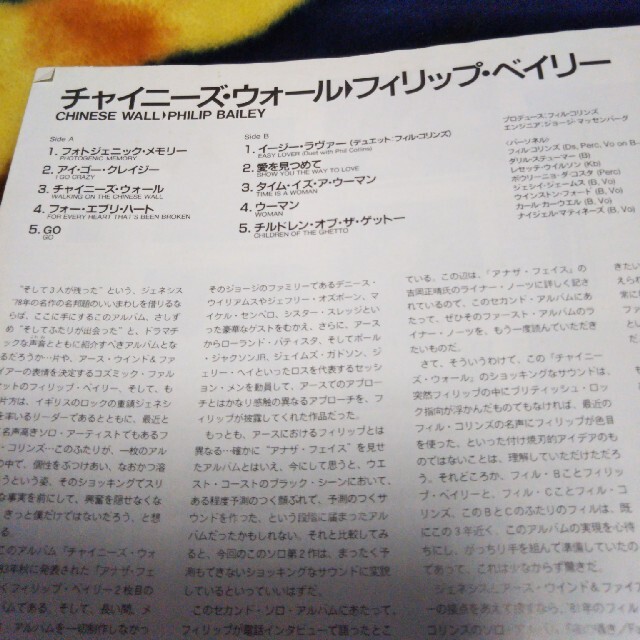 チャイニーズ・ウォール▶フィリップ・ベイリー
CHINESE WALL▶PHILIP BAILEY
Side A
1. フォトジェニック・メモリー
PHOTOGENIC MEMORY
2. アイ・ゴー・クレイジー
I GO CRAZY
3. チャイニーズ・ウォール
WALKING ON THE CHINESE WALL
4. フォー・エブリ・ハート
FOR EVERY HEART THAT'S BEEN BROKEN
5. GO
GO
Side B
1. イージー・ラヴァー (デュエット:フィル・コリンズ)
EASY LOVER (Duet with Phil Collins)
2. 愛を見つめて
SHOW YOU THE WAY TO LOVE
3. タイム・イズ・ア・ウーマン
TIME IS A WOMAN
4. ウーマン
WOMAN
5. チルドレン・オブ・ザ・ゲットー
CHILDREN OF THE GHETTO
プロデュース:フィル・コリンズ
エンジニア:ジョージ・マッセンバーグ
〈パーソネル〉
フィル・コリンズ (Ds, Perc, Vo on B-
ダリル・ステューマー (G)
レセッテ・ウイルソン (Kb)
ポウリーニョ・ダ・コスタ (Perc)
ジェシイ・ジェームス (B, Vo)
ウインストン・フォード (B, Vo)
カール・カーウエル (B, Vo)
ナイジェル・マティネーズ (B, Vo)
"そして3人が残った"という、ジェネシス
'78年の名作の名邦題のいいまわしを借りるな
らば、ここに手にするこのアルバム、さしずめ
"そしてふたりが出会った"と、ドラマチ
ックな声音とともに紹介すべきアルバムとな
るだろうか…片や、アース・ウインド&ファ
イアーの表情を決定するコズミック・ファル
セットのフィリップ・ベイリー、そして、も
片方は、イギリスのロックの重鎮ジェネシ
を率いるリーダーであるとともに、最近と
名声高きソロ・アーティストでもあるフ
・コリンズ…このふたりが、一枚のアル
の中で、個性をぶつけあい、なおかつ溶
うという姿、そのショッキングでスリ
な事実を前にして、興奮を隠せなくな
ぎっと僕だけではないだろう、と想
る。
このアルバム「チャイニーズ・ウォ
3年秋に発表された「アナザ・フェ
くフィリップ・ベイリー2枚目の
バムである。そして、長い間、メ
、アルバムを一切制作しなかっ
そのジョージのファミリーであるデニース・
ウイリアムスやジェフリー・オズボーン、マ
イケル・センベロ、シスター・スレッジとい
った豪華なゲストをむかえ、さらに、アース
からローランド・バティスタ、そしてポール
・ジャクソンJR、ジェイムズ・ガドソン、ジ
ェリー・ヘイといったロスを代表するセッシ
ョン・メンを動員して、アースでのアプロー
チとはかなり感触の異なるアプローチを、フ
ィリップが披露してくれた作品だった。
もっとも、アースにおけるフィリップとは
異なる…確かに"アナザ・フェイス"を見せ
たアルバムとはいえ、今にして思うと、ウエ
スト・コーストのブラック・シーンにおいて、
ある程度予測のつく顔ぶれで、予測のつくサ
ウンドを作った、という段階に留まったアル
バムだったかもしれない。それと比較してみ
ると、今回のこのソロ第2作は、まったく予
測もできないショッキングなサウンドに変貌
しているといっていいはずだ。
このセカンド・ソロ・アルバムにあたって、
フィリップが電話インタビューで語ったとこ
ている。この辺は、「アナザ・フェイス」の
吉岡正晴氏のライナー・ノーツに詳しく記さ
れているので、このセカンド・アルバムにあ
たって、ぜひそのファースト・アルバムのラ
イナー・ノーツを、もう一度読んでいただき
たいものだ。
さて、そういうわけで、この「チャイニー
ズ・ウォール」のショッキングなサウンドは、
突然フィリップの中にブリティッシュ・ロッ
ク指向が浮かんだものでもなければ、最近の
フィル・コリンズの名声にフィリップが色目
を使った、といった付け焼刃的アイデアのも
のではないことは、理解していただけただろ
う。それどころか、フィル・Bことフィリッ
プ・ベイリーと、フィル・Cことフィル・コ
リンズ、このBとCのふたりのフィルは、既
にこの3年近く、このアルバムの実現を心待
ちにし、がっちり手を組んで準備していたの
であって、これは少なからず驚きだ。
ジェネシスとアース・ウインド&ファイア